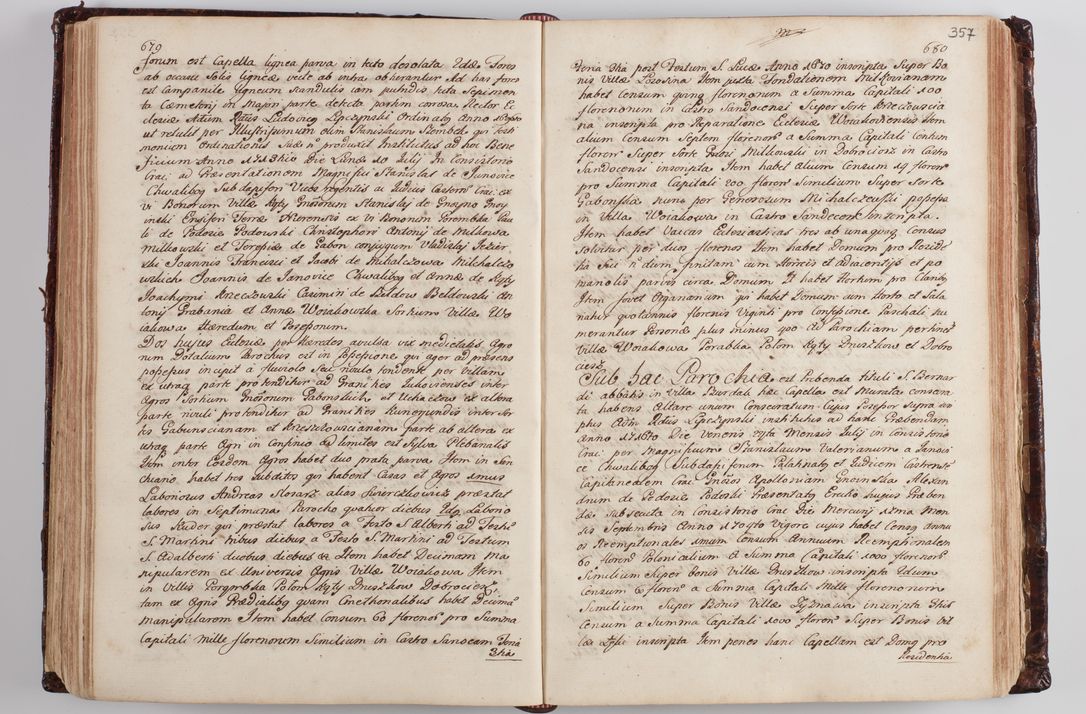 679
forum est Capella lignea parva in tuto desolata Idæ Fores
ab occasu Solis ligneæ vecte ab intra obserantur Ad has fores
est Campanile ligneum Scandulis iam putridis tecta Sepimen
ta Cæmeterij in Majori parte detecta partim corrosa. Rector Ec
clesiæ Lipczynski Ordinatus Anno
ut retulit per Illustrissimum olim Stanislaum Szembek qui Testi
monium Ordinationis Suæ nō produxit Institutus ad hoc Bene
ficium Anno Die Lunæ 10 Julij In Consistorio
Crac. ad Præsentationem Magnifici Stanislai de Janovice
Chwalibog Subdapiferi Vices gerentis ac Judicis Castren. Crac. ex
vi Bonorum Villæ Kąty Gnosorum Stanislaj de Gnoyno Gnoy
inski Ensiferi Terræ ex vi Bonorum Porąmbka
ti de Podosie Podowski Christophori Antonij de Milkowa
Milkowski et Teresiæ de Gabon conjugum Vladislaj Jezier
ski Joannis Francisci et Jacobi de Michalczowa Michalczo
wskich Joannis de Janovice Chwalibog et Annæ de Kąty
Joachymi Rzeczowski Casimiri de Bełdow Bełdowski An
tonij Grabania et Annæ Woiakowska Sortium Villæ Wo
iakowa Hæredum et Possessorum.
Dos hujus Ecclesiæ per Hæredes avulsa vix medietatis Agro
rum Dotalium Parochus est in Possessione, qui ager ad præsens
possessus incipit à fluviolo Seu rivulo tendente per villam
ex utraq parte protenditur ad Granities Lukovienses inter
Agros Sortium Gnosorum Gabonskich et Uchaczow ex altera
parte rivuli protenditur ad Granities Kunegundis inter Sor
tes Gabunscianam et Brzeszlowscianam parte ab altera ex
utraq parte Agri in Confinio ad limites est Sylva Plebanalis
Item inter Eosdem Agros habet duo prata parva. Item in Jan
chiano habet tres Subditos qui habent Casas et Agros unus
Laboriosus Andreas Slosarz alias præstat
labores in Septimana Parocho quatuor diebus Laborio
sus Kuder qui præstat labores a Festo S. Alberti ad Festum
S. Martini tribus diebus a Festo S. Martini ad Festum
S. Adalberti duobus diebus Item habet Decimam Ma
nipularem ex Universis Agris Villæ Woiakowa Item
in Villis Porąmbka Połom Kąty Druszkow Dobrociesz
tam ex Agris Prædialibq quam Cmethonalibus habet Decimā
manipularem Item habet Censum 60 florenoꝝ pro Summa
Capitali mille florenorum Similium in Castro Sandecen. Feria
3tia

680
357
Feria 3tia post Festum S. Lucæ Anno inscripta Super Bo
nis Villæ Łososina Item juxta Fondationem Milkovianam
habet Censum quinq florenorum a Summa Capitali 100
florenorum in Castro Sandecensi Super Sorte Rzeczovscia
na inscripta pro Reparatione Ecclesiæ Woiakowensis Item
alium Censum Septem florenoꝝ a Summa Capitali Centum
floren. Super Sorte Milkowski in Dobrociesz in Castro
Sandecensi inscripta Item habet alium Censum 14 florenoꝝ
pro Summa Capitali 200 floren. Similium Super Sorte
Gabonska nunc per Generosum Michalczewski possessa
in Villa Woiakowa in Castro Sandecen. Inscripta.
Item habet Vaccas Ecclesiasticas tres ab unaquaq Census
solvitur per duos florenos Item habet Domum pro Reside
tia Sui nōdum finitam cum Horreis et adjacentijs et po
manolis parvis circa Domum It habet Hortum pro
Item fovet Organarium qui habet Domum cum Horto et Sala
riatur quotannis florenis Viginti pro Confessione Paschali nu
merantur Personæ plus minus 400 ad Parochiam pertinet
Villæ Woiakowa Porąbka Połom Kąty Druszkow et Dobro
ciesz
Sub hac Parochia est Præbenda tituli S. Bernar
di abbatis in Villa hæc Capella est Murata consecra
ta habens Altare unum Consecratum cujus Possessor
Lipczynski institutus ad hanc Præbendam
Anno Die Veneris Mensis Julij in Consistorio
Crac. per Magnificum Stanislaum Valerianum a Janovi
ce Chwalibog Subdapiferum Palatnaty et Judicem Castrensē
Capitanealem Crac. Gnosos Apolloniam Alexan
drum de Podosie Podoski Præsentaty Erectio hujus Præben
dæ Subsecuta in Consistorio Crac. Die Mercurij Men
sis Septembris Anno Vigore cujus habet Censq Annu
os Reemptionales unum Censum Annuum Reemptionalem
60 florenoꝝ Polonicalium a Summa Capitali 1000 florenoꝝ
Similium Super bonis Villæ Druszkow inscripta 2dum
Censum 60 florenoꝝ a Summa Capitali Mille florenorum
Similium Super Bonis Villæ Tymawa inscripta 3tiū
Censum a Summa Capitali 1000 floren. Super Bonis Vil
læ inscripta Item penes hanc Capellam est Domq pro
Residentia